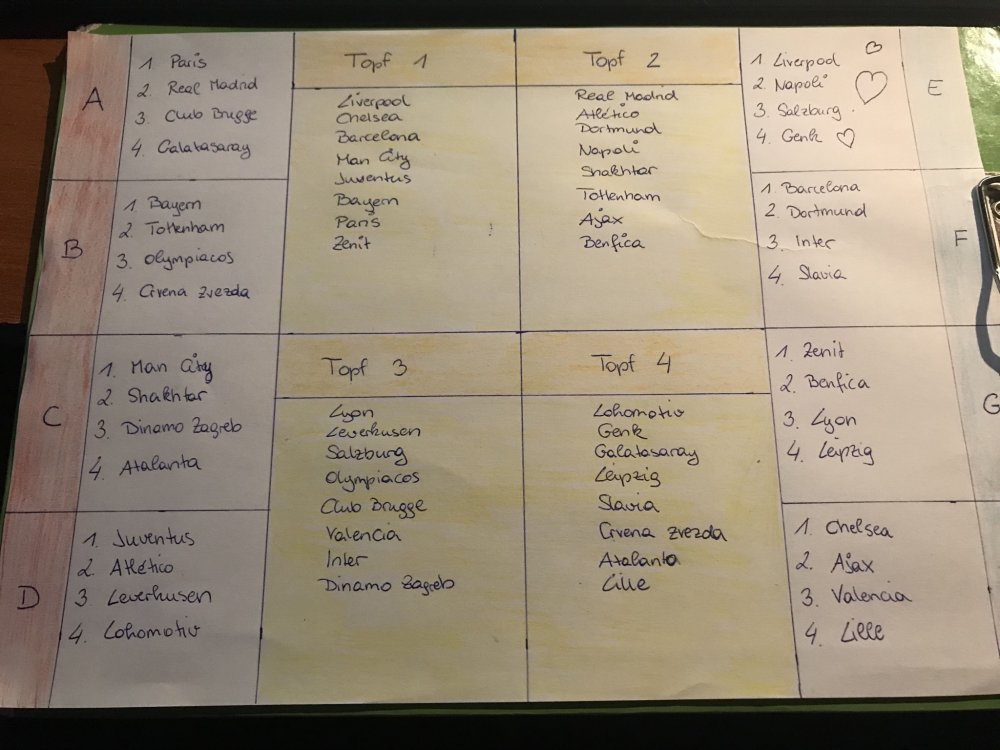 A
1 Paris
2. Real Madrid
3. Club Brugge
4. Galatasaray
B
1. Bayern
2. Tottenham
3. Olympiacos
4. Crvena Zvezda
C
1. Man City
2. Shakhtar
3. Dinamo Zagreb
4. Atalanta
D
1. Juventus
2. Atlético
3. Leverkusen
4. Lokomotiv
Topf 1
Liverpool
Chelsea
Barcelona
Man City
Juventus
Bayern
Paris
Zenit
Topf 2
Real Madrid
Atlético
Dortmund
Napoli
Shakhtar
Tottenham
Ajax
Benfica
Topf 3
Lyon
Leverkusen
Salzburg
Olympiacos
Club Brugge
Valencia
Inter
Dinamo Zagreb
Topf 4
Lokomotiv
Genk
Galatasaray
Leipzig
Slavia
Crvena zvezda
Atalanta
Lille
E
1 Liverpool
2. Napoli
3. Salzburg
4. Genk
F
1. Barcelona
2. Dortmund
3. Inter
4. Slavia
G
1. Zenit
2. Benfica
3. Lyon
4. Leipzig
1. Chelsea
2. Ajax
3. Valencia
4. Lille